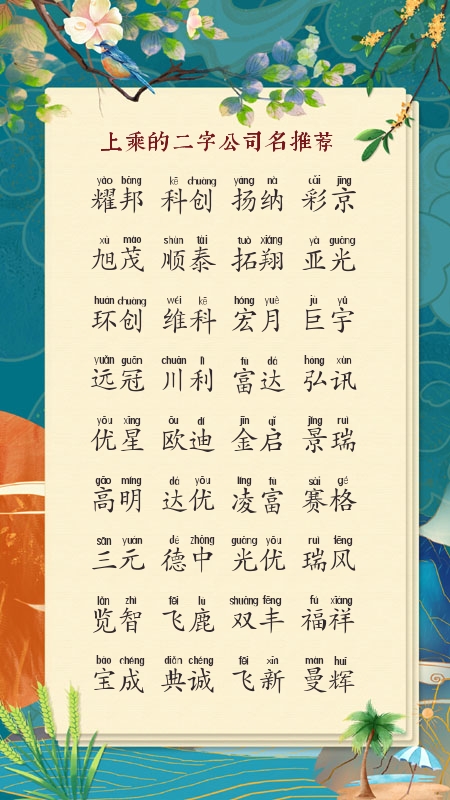 上乘的二字公司名推荐
yào bāng kē chuàng yáng nà cǎi jīng
耀邦 科创 扬纳 彩京
xù mào shùn tài tuò xiáng yà guāng
旭茂 顺泰 拓翔 亚光
huán chuàng wéi kē hóng yuè jù yǔ
环创 维科 宏月 巨宇
yuǎn guān chuān lì fù dá hóng xùn
远冠 川利 富达 弘讯
yōu xīng ōu dí jīn qǐ jǐng ruì
优星 欧迪 金启 景瑞
gāo míng dá yōu líng fù sài gé
高明 达优 凌富 赛格
sān yuán dé zhōng guāng yōu ruì fēng
三元 德中 光优 瑞风
lǎn zhì fēi lù shuāng fēng fú xiáng
览智 飞鹿 双丰 福祥
bǎo chéng diǎn chéng fēi xīn màn huī
宝成 典诚 飞新 曼辉